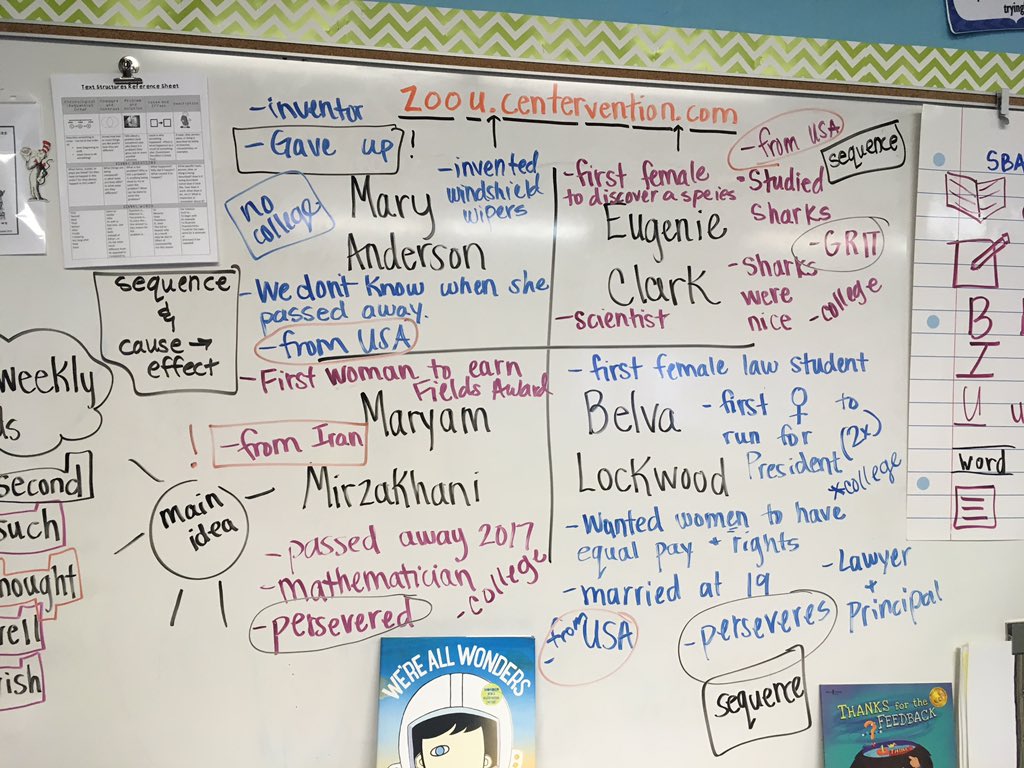 trying
Text Structures Reference Sheet
zoou.centervention.com
-inventor
-Gave up!
no
college
-invented
windshield
wipers
Mary
Anderson
-We dont know when she
passed away.
-from USA
sequence
&
cause →
effect
-first female
to discover a speies
-from USA
sequence
-Studied
sharks
Eugenie
Clark
-GRIT
-sharks
were
nice
-college
-scientist
-First woman to earn
Fields Award
!
-from Iran
Maryam
Mirzakhani
-passed away 2017
-mathematician
-college
-persevered
main
idea
-first female law student
Belva
Lockwood
-first ♀ to
run for (2x)
President
*college
-Wanted women to have
equal pay + rights
-married at 19
-from USA
-perseveres
-Lawyer
+
Principal
sequence
weekly
ds
second
such
hought
rell
ish
SBA
B
I
U
u
word
WE'RE ALL WONDERS
THANKS for the
FEEDBACK